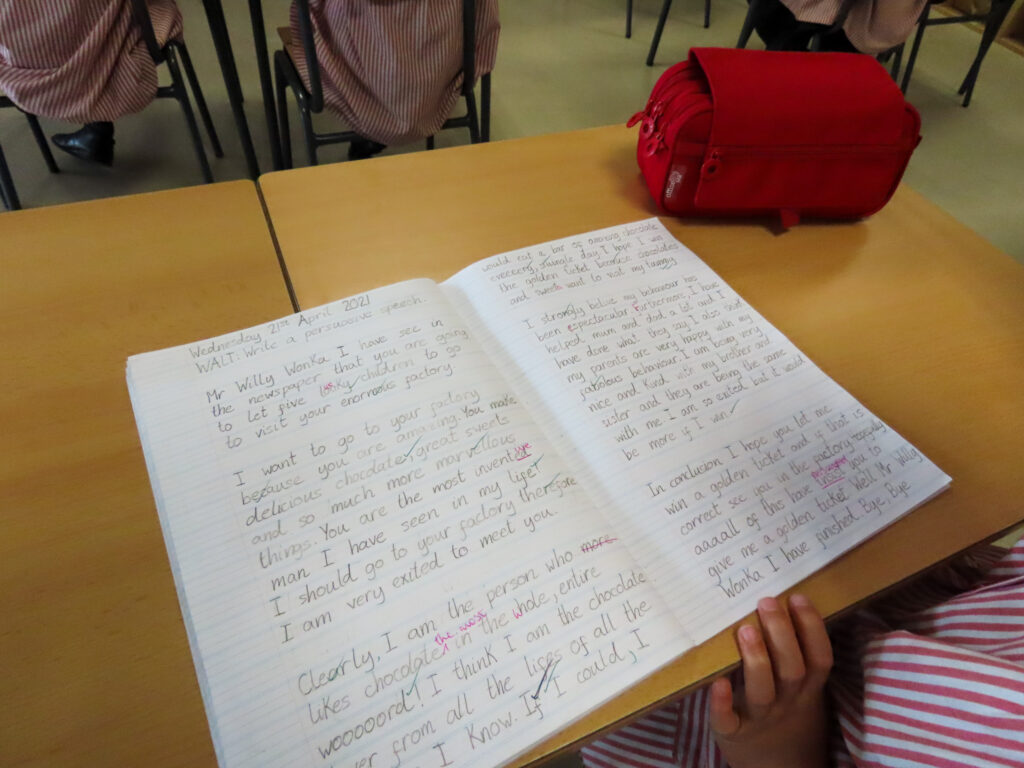 Wednesday 21st April 2021
WALT: Write a persuasive speech.
Mr Willy Wonka I have see in
the newspaper that you are going
to let five children to go
to visit your enormous factory.
I want to go to your factory
because you are amazing. You make
delicious chocolates great sweets
and so much more marvellous
things. You are the most inventive
man I have seen in my life!
I should go to your factory therefore
I am very exited to meet you.
Clearly, I am the person who more
likes chocolate the most in the whole, entire
wooooord! I think I am the chocolate
er from all the lices of all the
I know. If I could, I
would eat a bar of amazing chocolate
every, single day I hope I win
the golden ticket because chocolates
and sweets want to visit my tummy
I strongly belive my behaviour has
been espectacular. Furthermore, I have
helped mum and dad a lot and I
have done what they say I also think
my parents are very happy with my
behaviour. I am being very
nice and kind with my brother and
sister and they are being the same
with me I am so exited but it would
be more if I win
In conclusion I hope you let me
win a golden ticket and if that is
correct see you in the factory hopefully
aaaall of this have you to
give me a golden ticket. Well Mr Willy
Wonka I have finished Bye Bye